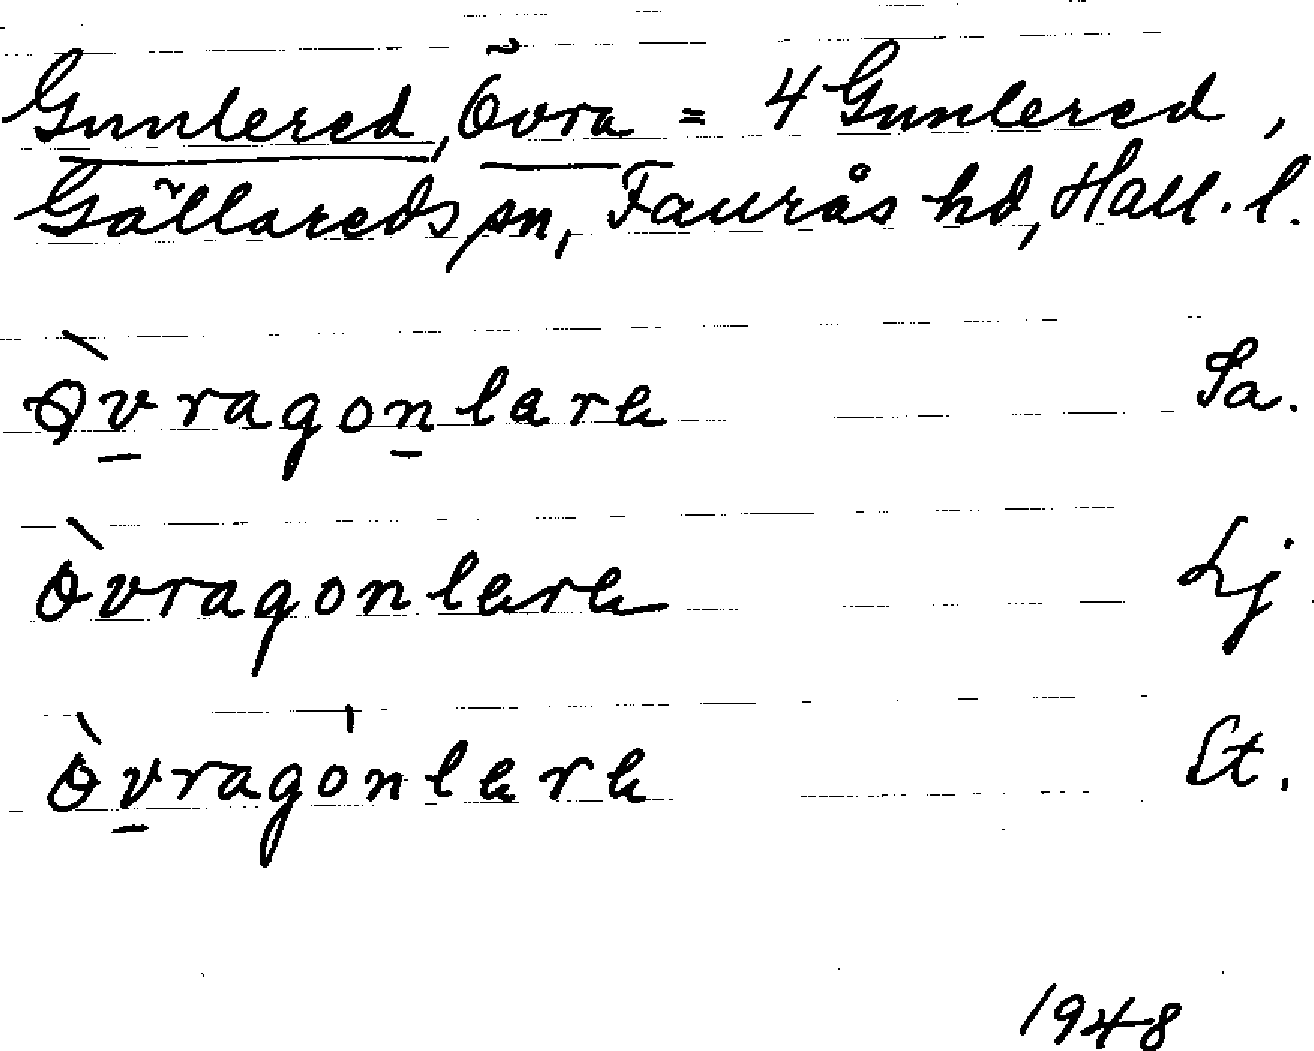 Gunlered, Övra = 4 Gunlered,
Gällareds sn, Faurås hd, Hall. l.
Òvragonlare Sa.
òvragonlare Lj
òvragonlare St.
1948